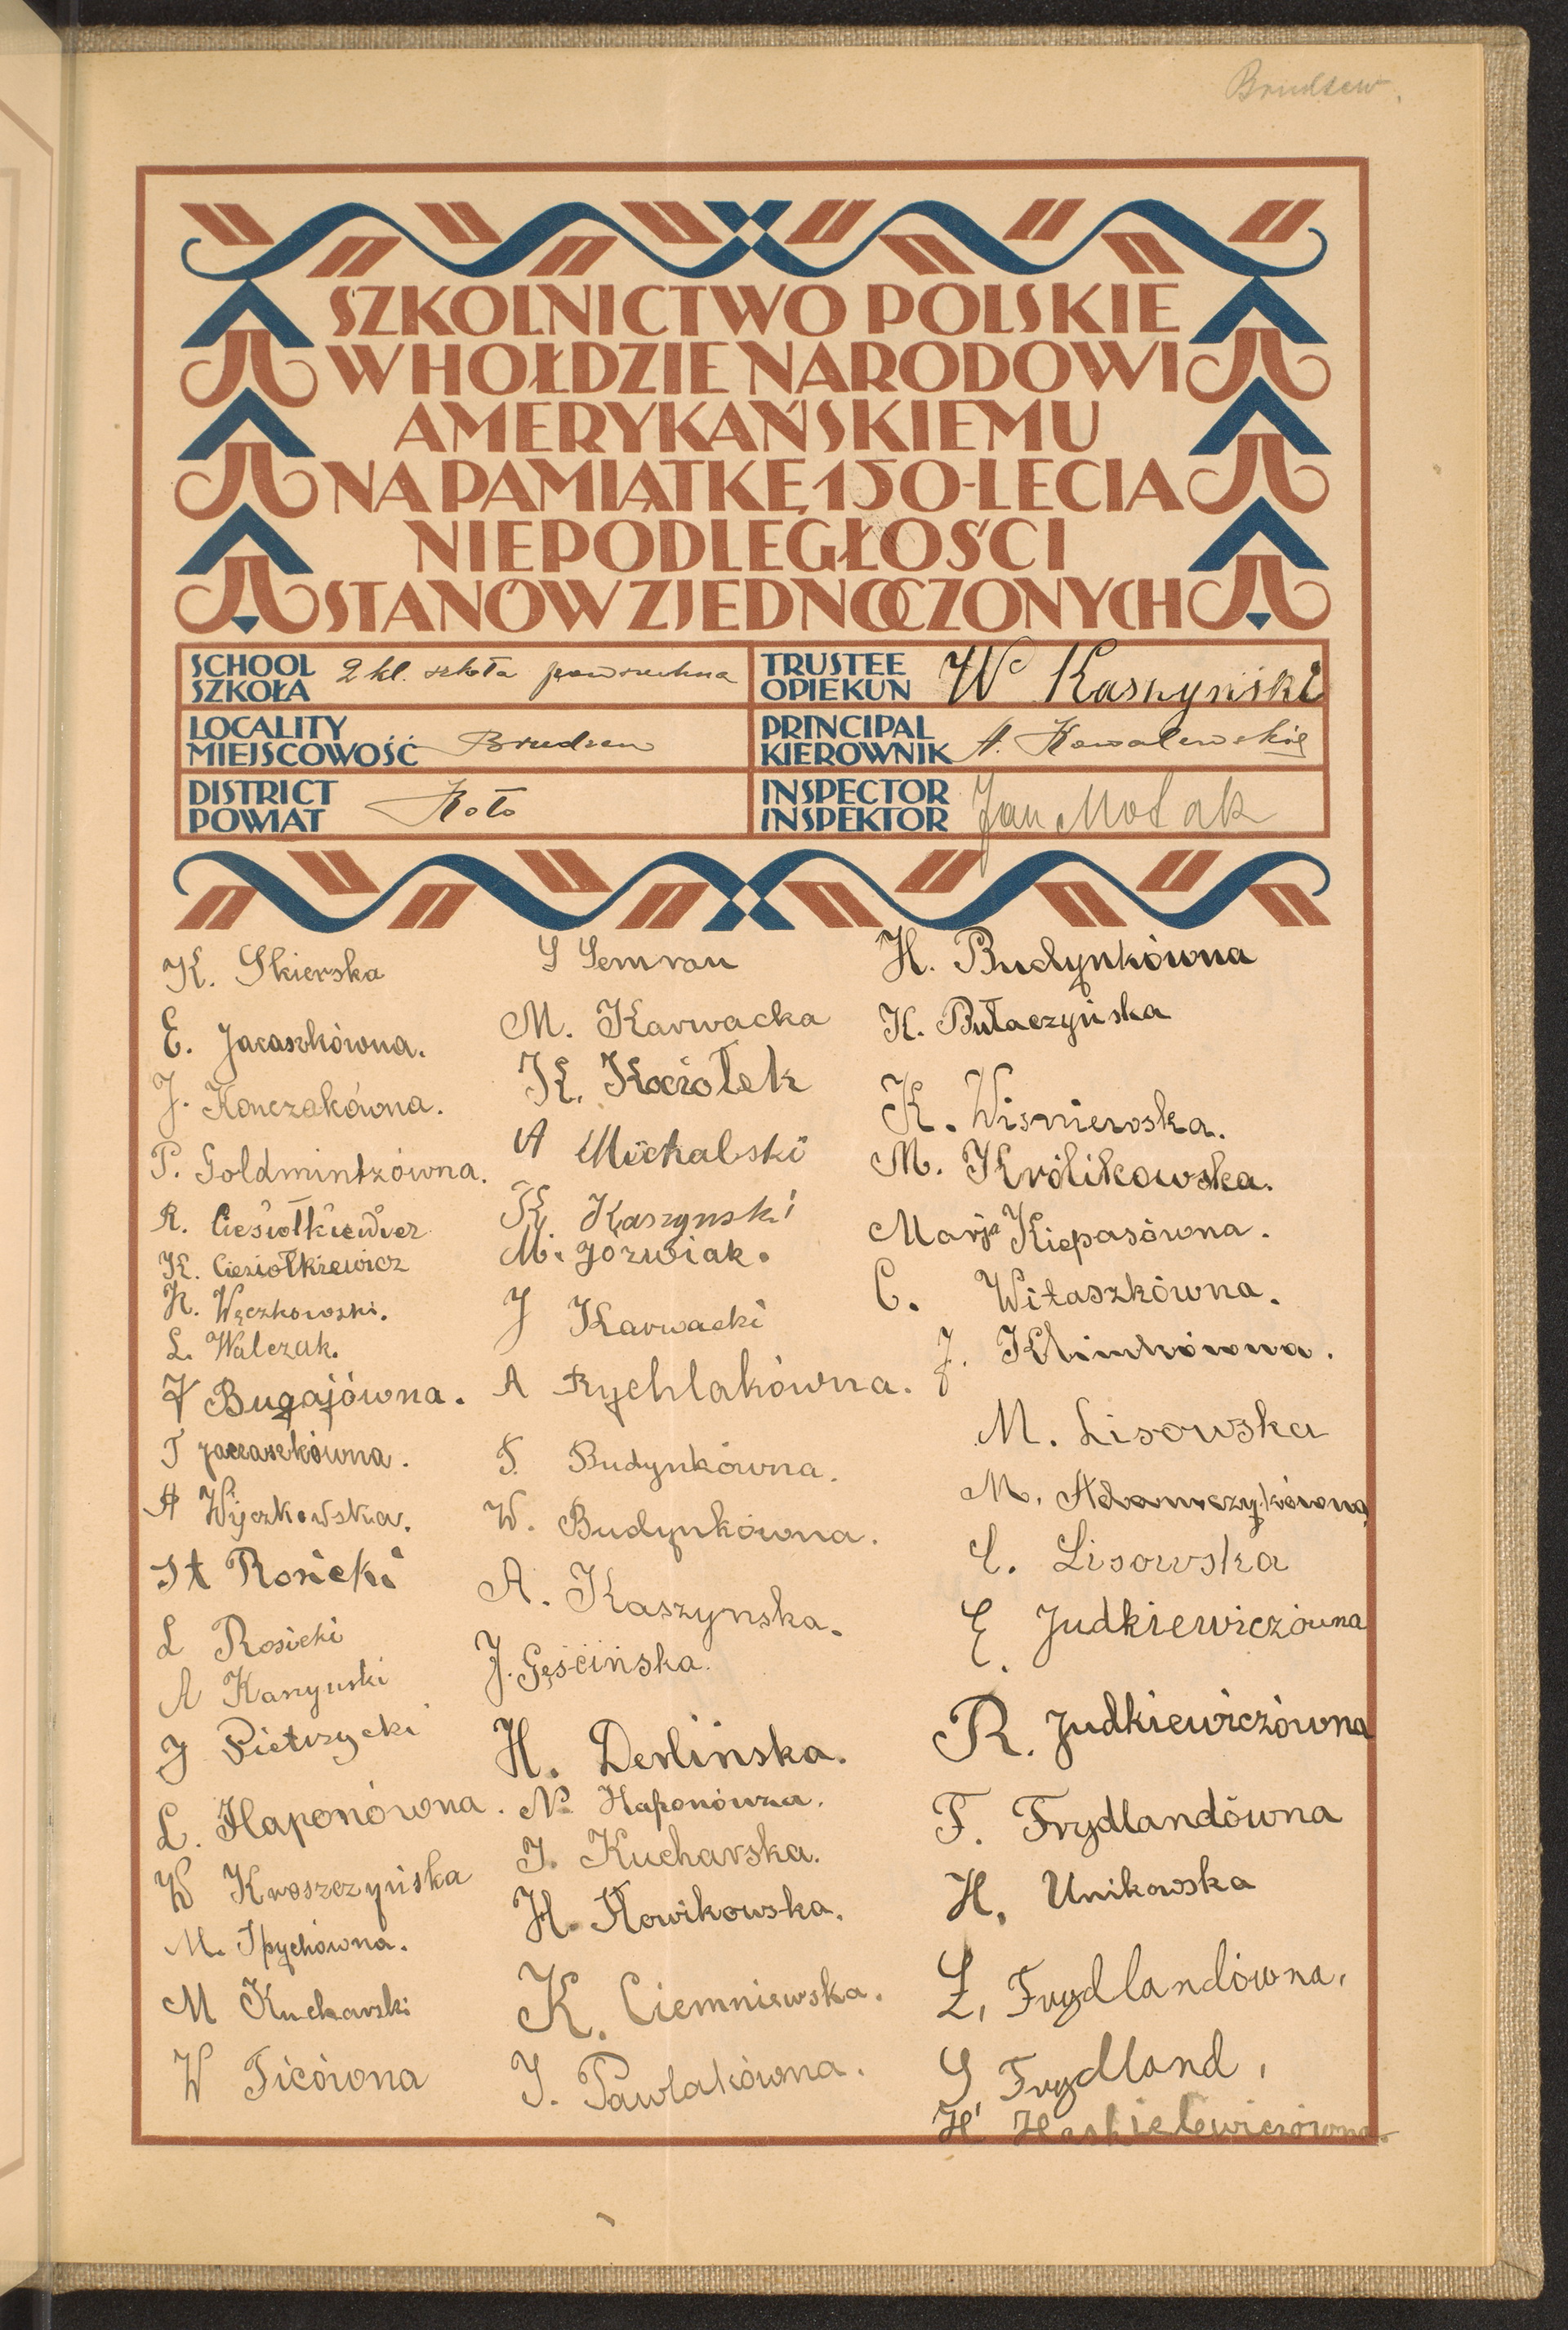 Brudzew.
SZKOLNICTWO POLSKIE
W HOŁDZIE NARODOWI
AMERYKAŃSKIEMU
NA PAMIĄTKĘ 150-LECIA
NIEPODLEGŁOŚCI
STANÓW ZJEDNOCZONYCH
SCHOOL
SZKOŁA
2 kl. szkoła powszechna
TRUSTEE
OPIEKUN
W Kaszyński
LOCALITY
MIEJSCOWOŚĆ
Brudzew
PRINCIPAL
KIEROWNIK
A. Kowalewskie
DISTRICT
POWIAT
Koło
INSPECTOR
INSPEKTOR
Jan
K. Skierska
E. Jacaszkówna.
J. Konczakówna.
P. Goldmintzówna.
R. Ciesiołkiewicz
K. Ciesiołkiewicz
K. Węczkowski.
L. Walczak.
Bugajówna.
T Jacraszkówna.
A Więczkowska.
St Rosicki
L Rosicki
A Kaszyński
J Pietrzycki
L. Haponówna.
W Kroszczyńska
M. Spychówna.
M Kucharski
W Ficówna
S Semrau
M. Karwacka
K. Kociołek
A Michalski
K Kaszynski
M. Jóżwiak.
J Karwacki
A Rychlakówna.
F. Budynkówna.
W. Budynkówna.
A. Kaszynska.
J. Gęścińska.
H. Derlińska.
N. Haponówna.
J. Kucharska.
H. Nowikowska.
K. Ciemniewska.
J. Pawlakówna.
H. Budynkówna
K. Bułaczyńska
K. Wisniewska.
M. Królikowska.
Marja Kiepasówna.
C. Witaszkówna.
J. Klimkówna.
M. Lisowska
M. Adamczykówna
C. Lisowska
E. Judkiewiczówna
R. Judkiewiczówna
F. Frydlandówna
H. Unikowska
Ł. Frydlandówna.
S Frydland.
H Haskielewiczówna.